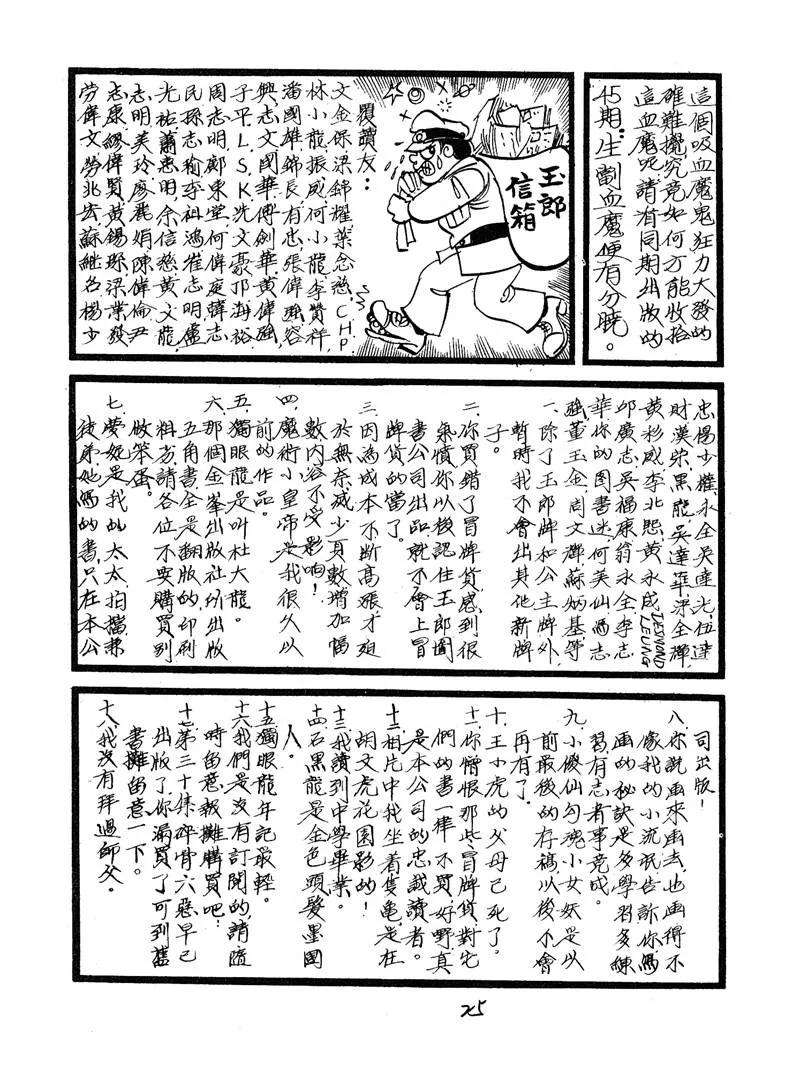 這個吸血魔鬼狂力大發的
確難攪究竟如何方能收拾
這血魔呢請看同期出版的
45期「生劏血魔便有分曉。
玉郎
信箱
覆讀友：
文金保梁錦耀葉念慈、CHP
林小龍振威何小龍、李贊祥、
潘國雄錦長、有忠、張偉
興志文國華傅劍華黃偉
子平L.S.K冼文豪邝海裕
周志明鄺東堂何偉庭韓志
民孫志榆李科鴻崔志明盧
光祐蕭惠明、余信慈黃文龍
志明美玲廖麗娟陳偉倫尹
志康繆偉賢黃錫琛梁業發
勞偉文勞兆宏蘇繼名楊少
忠楊少權永全吳達光伍達
財漢榮黑龍吳達華深全輝
黃衫威李北熙黃永成DESMOND LEUNG
邱廣志吳福康翁永全李志
華你的图書迷何美仙馮志
強董玉金周文輝蘇炳基等
一、除了玉郎牌和公主牌外，
暫時我不會出其他新牌
子。
二、你買錯了冒牌貨感到很
氣憤你以後認住玉郎圖
書公司出品就不會上冒
牌貨的當了。
三、因為成本不斷高漲才迫
於無奈減少頁數增加幅
數內容不受影响！
四、魔術小皇帝是我很久以
前的作品。
五、獨眼龍是叫杜大龍。
六、那個金峯出版社所出版
五角書全是翻版的印刷
料劣請各位不要購買别
做笨蛋。
七、夢妮是我的太太、拍檔兼
徒弟她馮的書只在本公
司出版！
八、你説画來画去也画得不
像我的小流氓告訴你
画的秘訣是多學習多練
習有志者事竟成。
九、小傻仙勾魂小女妖是以
前最後的存稿以後不會
再有了。
十、王小虎的父母已死了。
十一、你憎恨那些冒牌貨對它
們的書一律不買好野真
是本公司的忠誠讀者。
十二、相片中我坐着隻龜是在
胡文虎花園影的！
十三、我讀到中學畢業。
十四、石黑龍是金色頭髮墨國
人。
十五、獨眼龍年記最輕。
十六、我們是没有訂閱的請隨
時留意報攤購買吧！
十七、第三十集碎骨六惡早已
出版了你漏買了可到舊
書攤留意一下。
十八、我没有拜過師父。
25